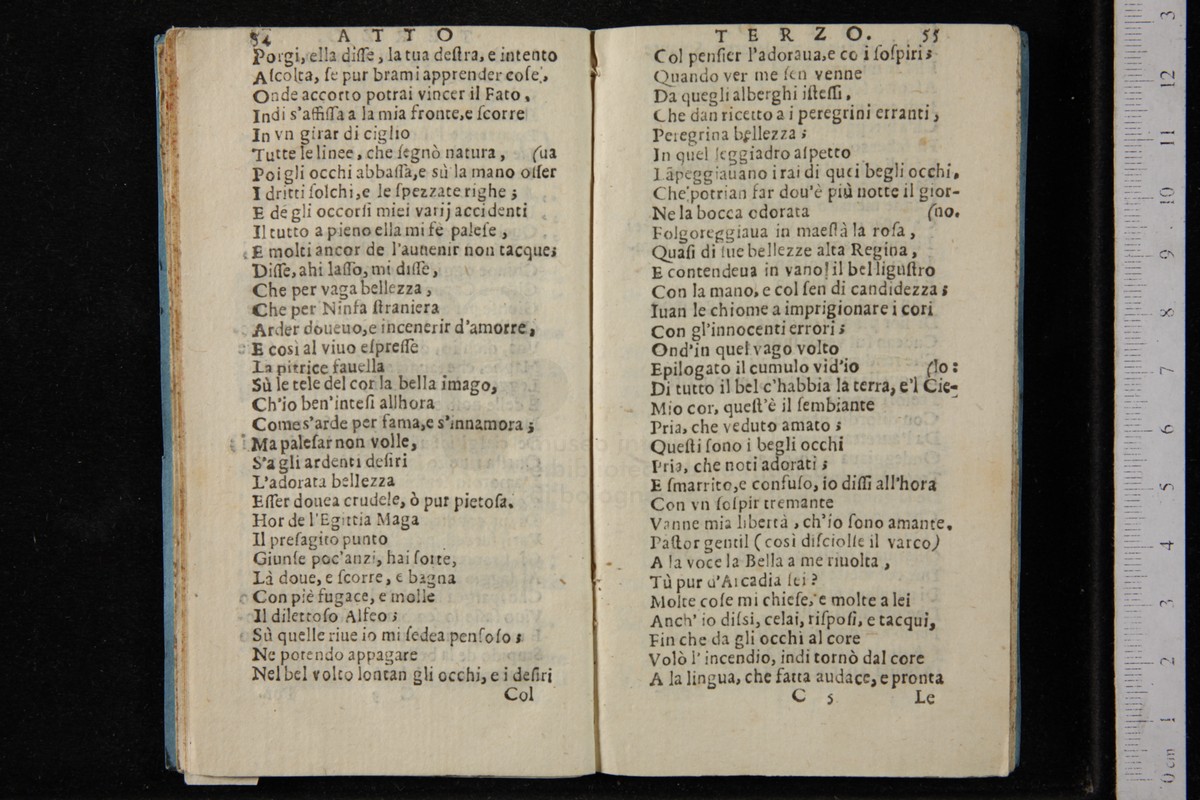 54 ATTO
Porgi, ella diſſe, la tua deſtra, e intento
Aſcolta, ſe pur brami apprender coſe,
Onde accorto potrai vincer il Fato,
Indi s'affiſſa a la mia fronte,e ſcorre
In vn girar di ciglio
Tutte le linee, che ſegnò natura, (ua
Poi gli occhi abbaſſa,e sù la mano oſſer
I dritti ſolchi,e le ſpezzate righe;
E de gli occorſi miei varij accidenti
Il tutto a pieno ella mi fe paleſe,
E molti ancor de l'auuenir non tacque;
Diſſe, ahi laſſo, mi diſſe,
Che per vaga bellezza,
Che per Ninfa ſtraniera
Arder doueuo,e incenerir d'amorre,
E così al viuo eſpreſſe
La pittrice fauella
Sù le tele del cor la bella imago,
Ch'io ben'inteſi allhora
Come s'arde per fama,e s'innamora;
Ma paleſar non volle,
S'a gli ardenti deſiri
L'adorata bellezza
Eſſer douea crudele, ò pur pietoſa.
Hor de l'Egittia Maga
Il preſagito punto
Giunſe poc'anzi, hai ſorte,
Là doue, e ſcorre, e bagna
Con piè fugace, e molle
Il dilettoſo Alfeo;
Sù quelle riue io mi ſedea penſoſo;
Ne potendo appagare
Nel bel volto lontan gli occhi, e i deſiri
Col
TERZO. 55
Col penſier l'adoraua,e co i ſoſpiri;
Quando ver me ſen venne
Da quegli alberghi iſteſſi,
Che dan ricetto a i peregrini erranti,
Peregrina bellezza;
In quel leggiadro aſpetto
Lāpeggiauano i rai di quei begli occhi,
Che potrian far dou'è più notte il gior-
Ne la bocca odorata (no.
Folgoreggiaua in maeſtà la roſa,
Quaſi di ſue bellezze alta Regina,
E contendeua in vano il bel liguſtro
Con la mano, e col ſen di candidezza;
Iuan le chiome a imprigionare i cori
Con gl'innocenti errori;
Ond'in quel vago volto
Epilogato il cumulo vid'io (lo:
Di tutto il bel c'habbia la terra, e'l Cie-
Mio cor, queſt'è il ſembiante
Pria, che veduto amato;
Queſti ſono i begli occhi
Pria, che noti adorati;
E ſmarrito,e confuſo, io diſſi all'hora
Con vn ſoſpir tremante
Vanne mia libertà, ch'io ſono amante.
Paſtor gentil (così diſciolſe il varco)
A la voce la Bella a me riuolta,
Tù pur d'Arcadia ſei?
Molte coſe mi chieſe, e molte a lei
Anch' io diſsi, celai, riſpoſi, e tacqui,
Fin che da gli occhi al core
Volò l' incendio, indi tornò dal core
A la lingua, che fatta audace, e pronta
C 5 Le